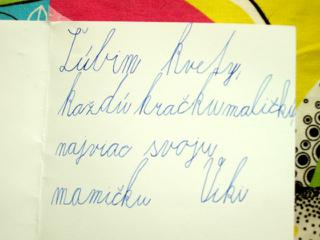 Ľúbim kvety,
každú kračkumaličkú,
najviac svoju
mamičku Viki